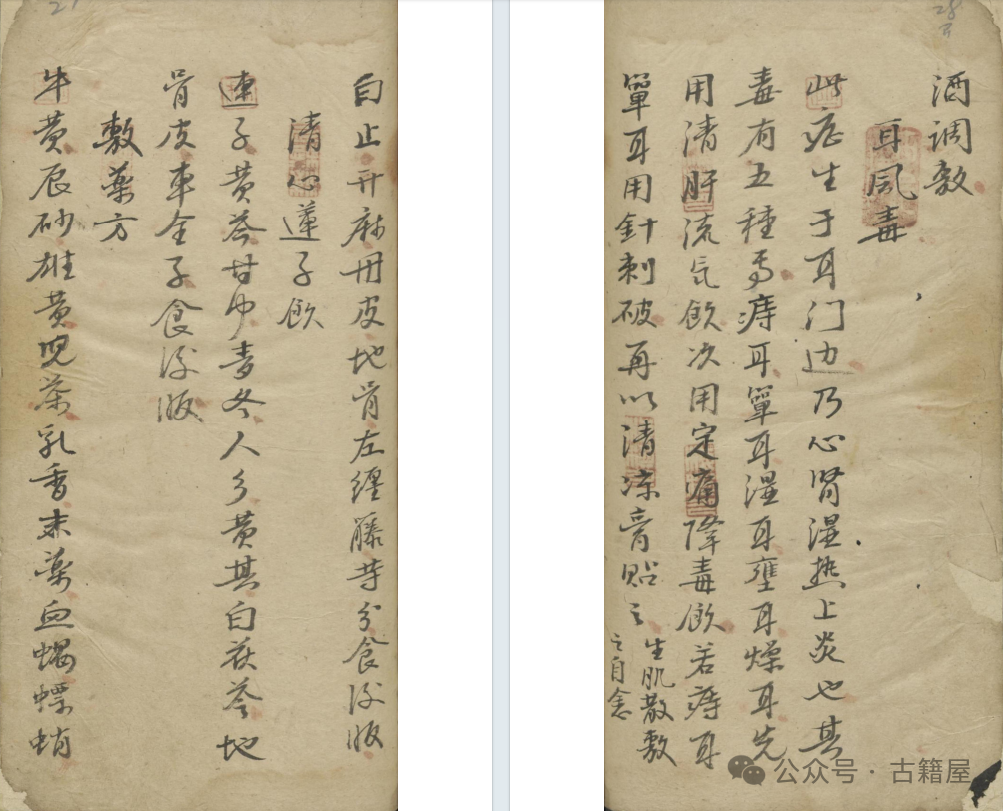 酒调敷
耳风毒
此症生于耳门边乃心肾湿热上炎也其
毒有五種焉痔耳單耳湿耳壅耳燥耳先
用清肝流氣飲次用定痛降毒飲若痔耳
單耳用針刺破再以清凉膏贴之生肌散敷
之自愈
白止升麻丹皮地骨左纏藤等分食後服
清心蓮子飲
連子黄芩甘中麦冬人参黄其白茯苓地
骨皮車全子食後服
敷藥方
牛黄辰砂雄黄児茶乳香末藥血蝎螵蛸
公众号·古籍屋